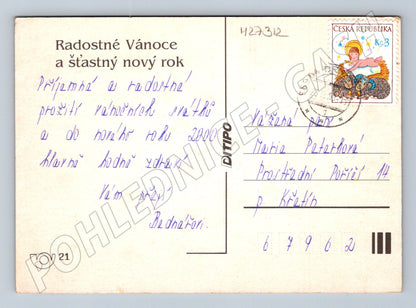 427312
ČESKÁ REPUBLIKA
Kč 3
Radostné Vánoce
a šťastný nový rok
Příjemné a radostné
prožití vánočních svátků
a do nového roku 2000
hlavně hodně zdraví
Vám přejí
DITIPO
Vážená paní
Marie
Prostřední Poříčí 14
p. Křetín
6 7 9 6 2
21
POHLEDNICE-